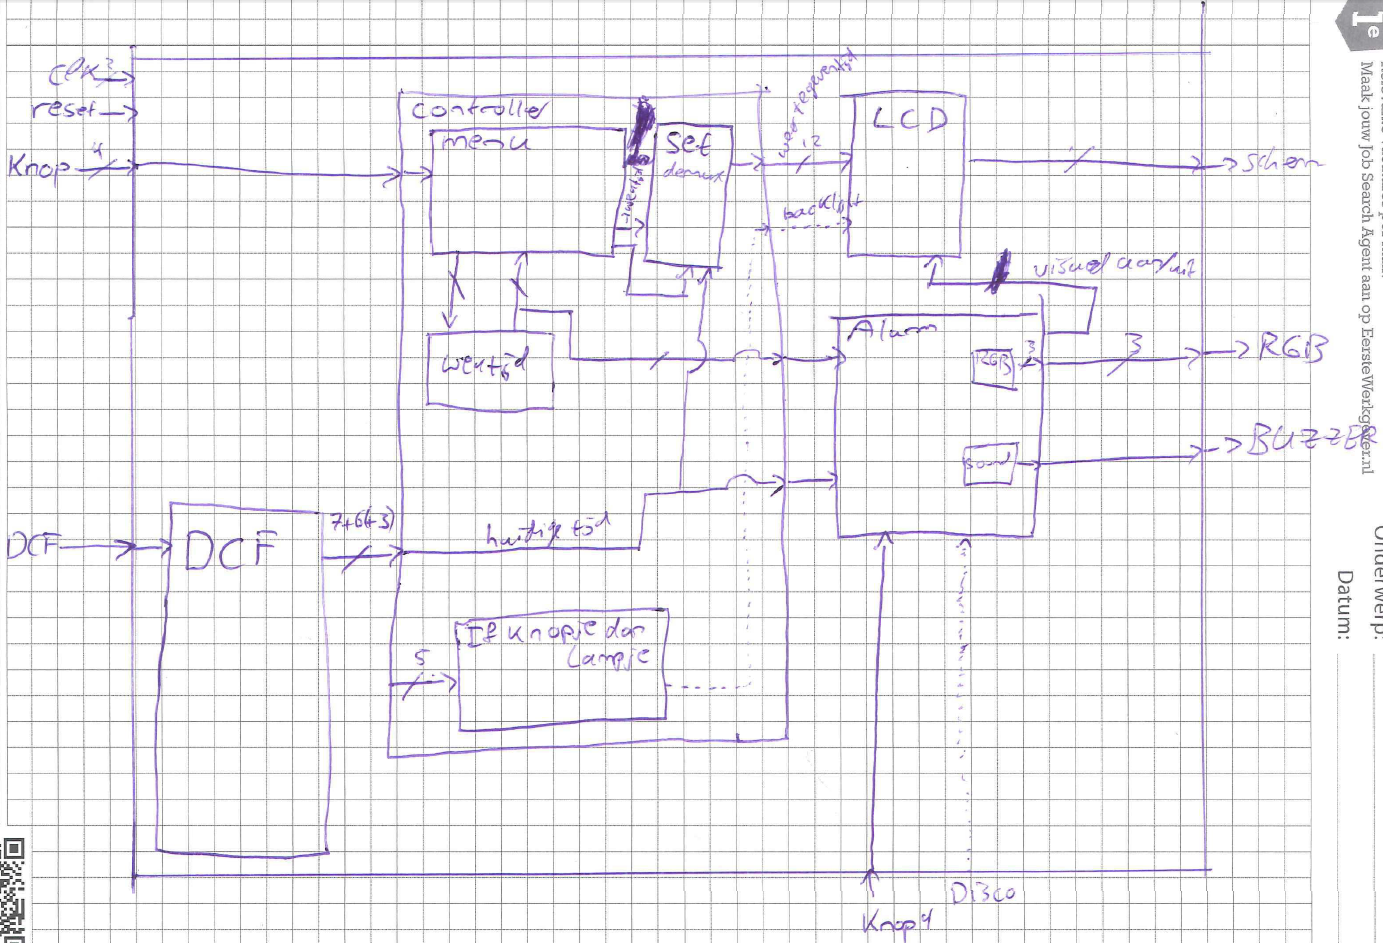 clk 2
reset
Knop 4
controller
menu
set
weergeventijd
12
LCD
scherm
backlight
visueel aan/uit
wektijd
Alarm
RGB 3
3
RGB
sound
BUZZER
DCF
DCF
7+6(+3)
huidige tijd
If Knopje dan
Lampje
5
Knop 4
Disco
1e
Maak jouw Job Search Agent aan op EersteWerkgever.nl
Onderwerp:
Datum: